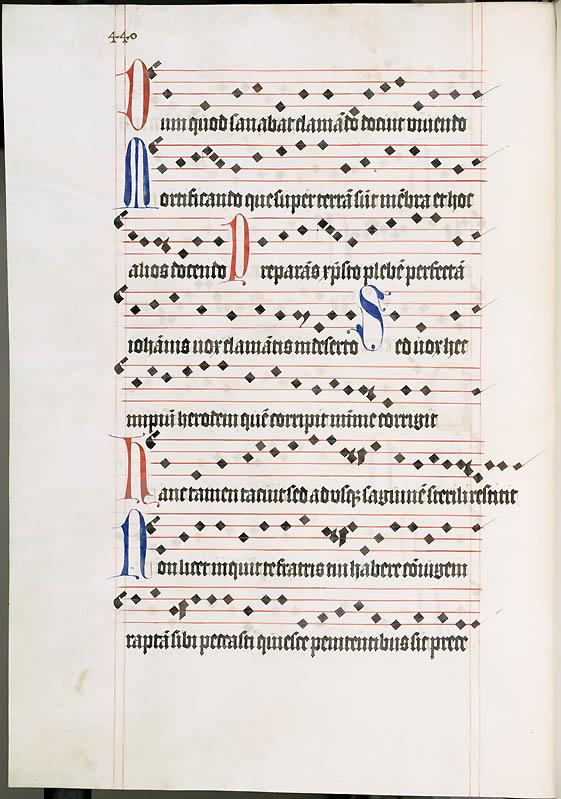 440
Dum quod sanabat clamādo docuit vivendo
Mortificando que super terrā sūt mēbra et hoc
alios docendo Preparās xp̄sto plebē perfectā
iohānis vox clamātis in deserto Sed vox hec
impiū herodem quē corripit mīme corrigit
Hanc tamen tacuit sed ad usqꝫ
Non licet inquit te fratris tui habere cōiugem
raptā sibi peccasti quiesce penitentibus sic prece